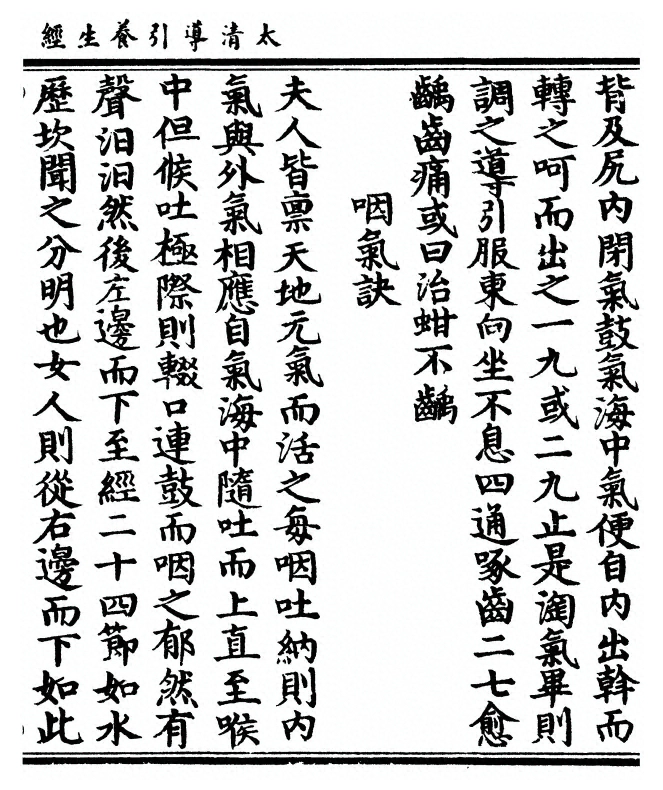 太清導引養生經
背及尻內閉氣鼓氣海中氣便自內出斡而
轉之呵而出之一九或二九止是淘氣畢則
調之導引服東向坐不息四通啄齒二七愈
齲齒痛或曰治蚶不齲
咽氣訣
夫人皆稟天地元氣而活之每咽吐納則內
氣與外氣相應自氣海中隨吐而上直至喉
中但候吐極際則輟口連鼓而咽之郁然有
聲汩汩然後左邊而下至經二十四節如水
歷坎聞之分明也女人則從右邊而下如此